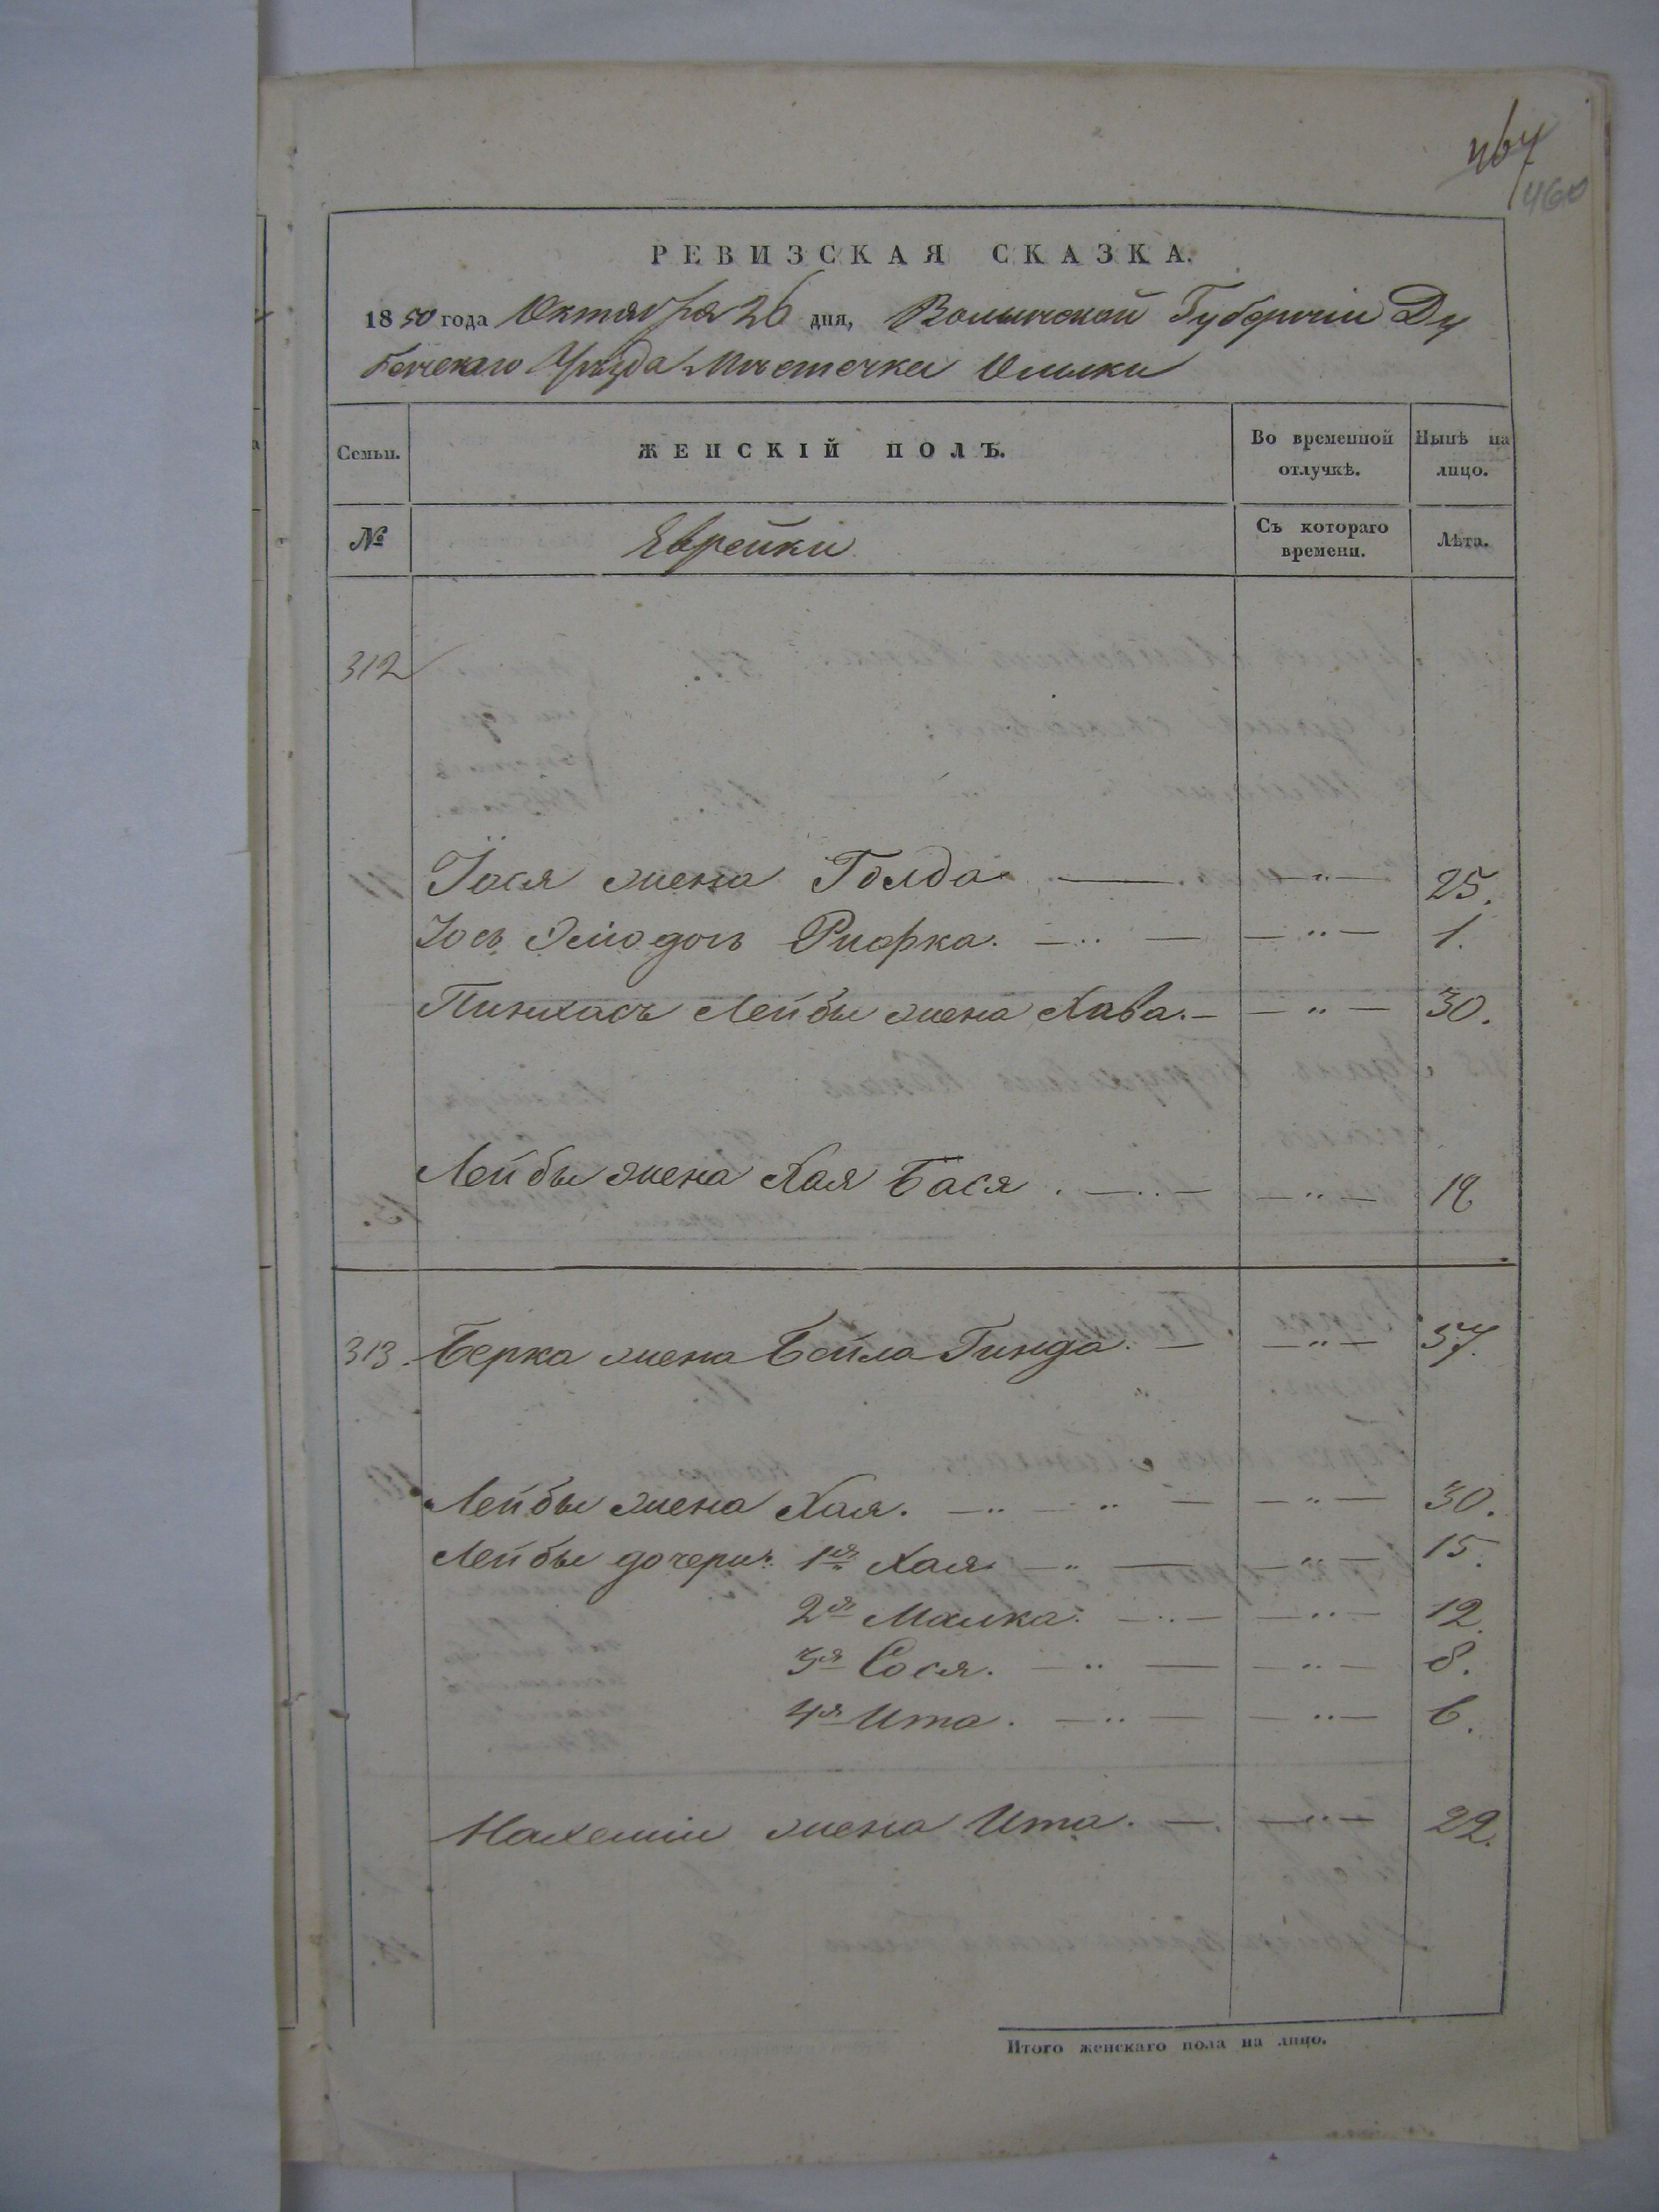 467
460
РЕВИЗСКАЯ СКАЗКА.
1850 года Октября 26 дня, Волынской Губерніи Ду
бенскаго Уѣзда Мѣстечка Олыки
Семьи.
ЖЕНСКІЙ ПОЛЪ.
Во временной отлучкѣ.
Нынѣ на лицо.
№
Еврейки
Съ котораго времени.
Лѣта.
312
Іося жена Голда — — „ — 25.
Іося дочь Ривка. — „ — — „ — 1.
Пинхасъ Лейбы жена Хава. — — „ — 30.
Лейбы жена Хая Бася. — „ — — „ — 18
313. Берка жена Бейла Гинда. — — „ — 57.
Лейбы жена Хая. — „ — „ — — „ — 30.
Лейбы дочери: 1я Хая — „ — — „ — 15.
2я Малка. — „ — — „ — 12.
3я Сося. — „ — — „ — 8.
4я Ита. — „ — — „ — 6.
Нахеміи жена Ита. — — „ — 22.
Итого женскаго пола на лицо.